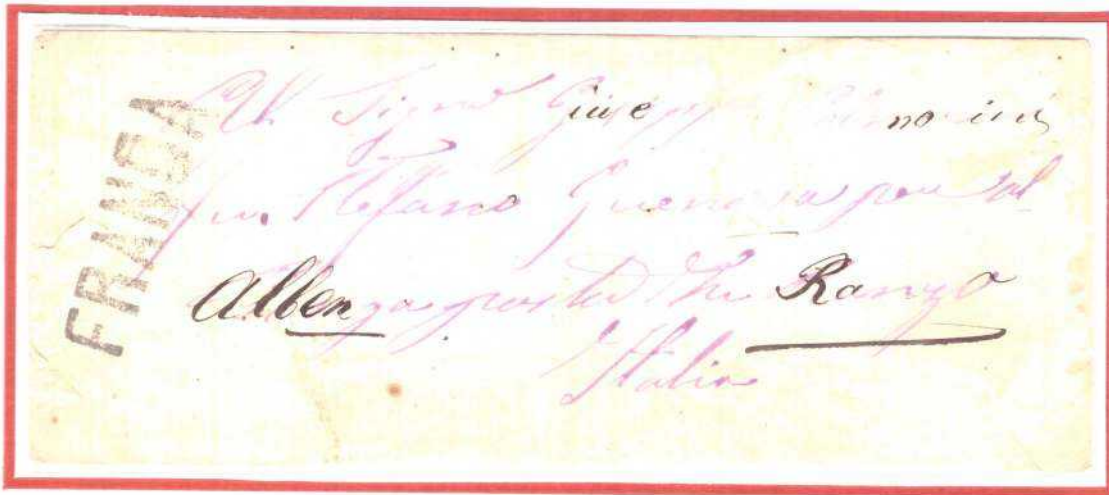 FRANCA
Al Signor Giusepp
fu Stefano Guenova per al
Albenga posta Ranzo
Italia